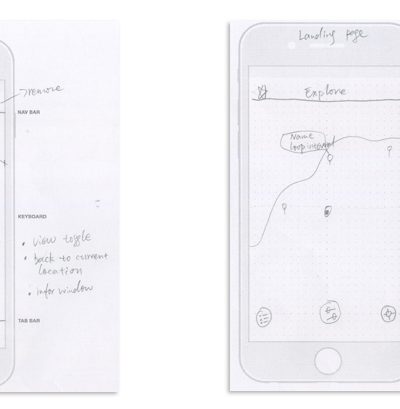 remove
NAV BAR
KEYBOARD
• view toggle
• back to current
location
• infor window
TAB BAR
Landing page
Explore
Name